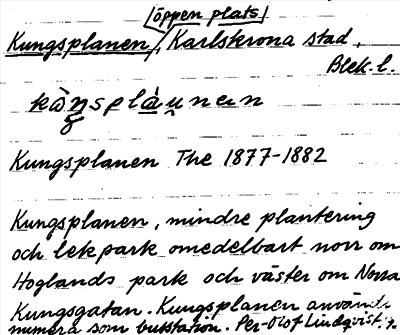 /öppen plats/
Kungsplanen, Karlskrona stad,
Blek. l.
Kungsplanen The 1877-1882
Kungsplanen, mindre plantering
och lekpark omedelbart norr om
Hoglands park och väster om Norra
Kungsgatan. Kungsplanen används
numera som busstation. Per-Olof Lindqvist.